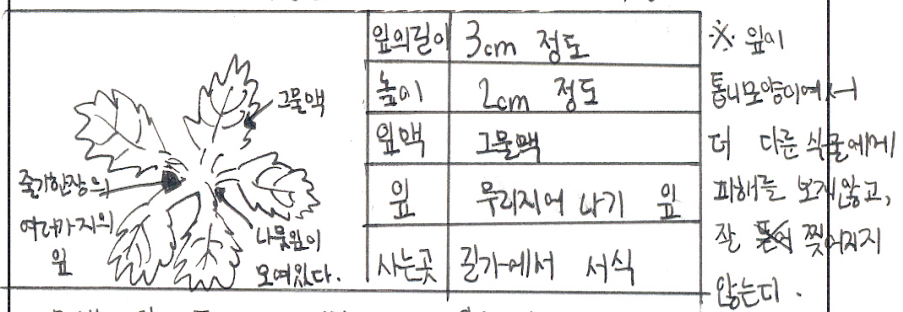 그물맥
줄기한장의
여러가지의
잎
나뭇잎이
모여있다.
잎의길이 3cm 정도
높이 2cm 정도
잎맥 그물맥
잎 무리지어 나기 잎
사는곳 길가에서 서식
※ 잎이
톱니모양이여서
더 다른 식물에게
피해를 보지않고,
잘 찢어지지
않는다.